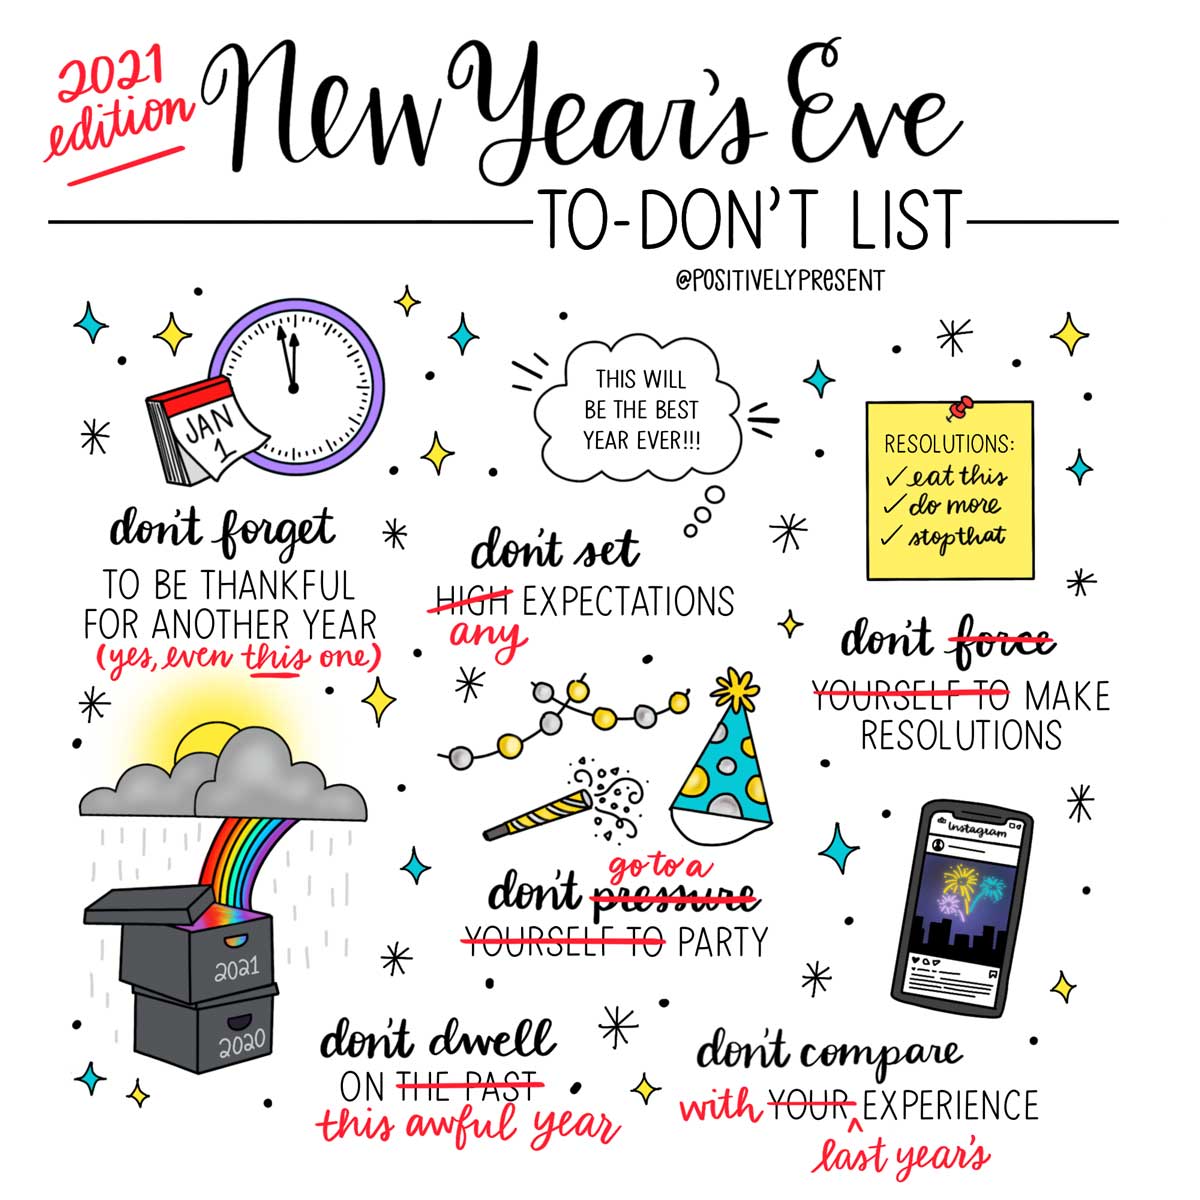 2021
edition
New Year's Eve
TO-DON'T LIST
@POSITIVELYPRESENT
JAN
1
don't forget
TO BE THANKFUL
FOR ANOTHER YEAR
(yes, even this one)
THIS WILL
BE THE BEST
YEAR EVER!!!
don't set
HIGH EXPECTATIONS
any
RESOLUTIONS:
✓ eat this
✓ do more
✓ stop that
don't force
YOURSELF TO MAKE
RESOLUTIONS
2021
2020
don't dwell
ON THE PAST
this awful year
go to a
don't pressure
YOURSELF TO PARTY
Instagram
don't compare
with YOUR EXPERIENCE
last year's